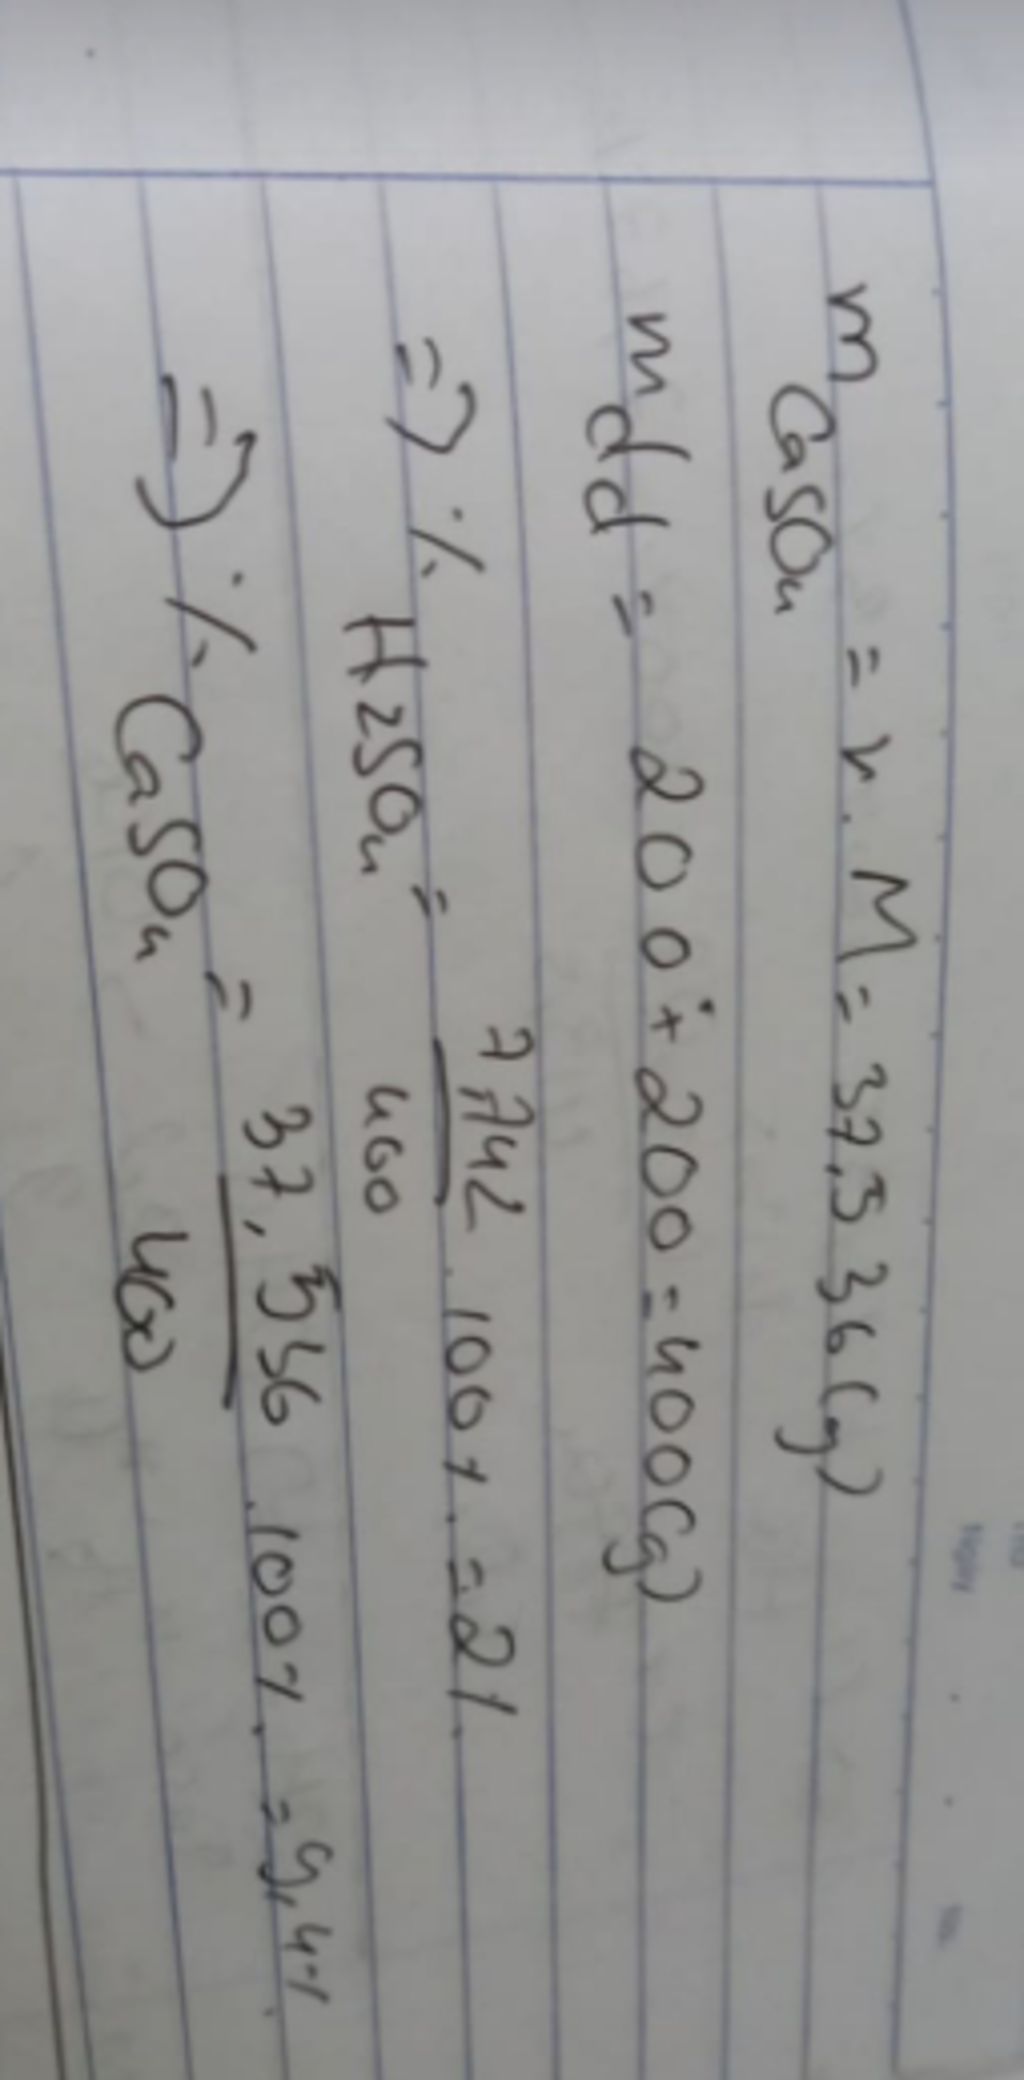 m CaSO4 = n . M = 37,536 (g)
m dd = 200 + 200 = 400 (g)
=> % H2SO4 = 7,742 / 400 . 100% = 2%
=> % CaSO4 = 37,536 / 400 . 100% = 9,4%